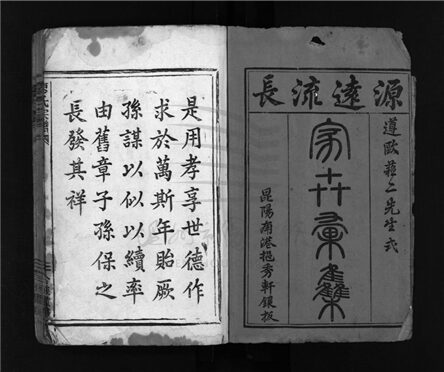 源遠流長
遵歐蘇二先生式
家彙集
昆陽南港挹秀軒鋟板
是用孝享世德作
求於萬斯年貽厥
孫謀以似以續率
由舊章子孫保之
長發其祥